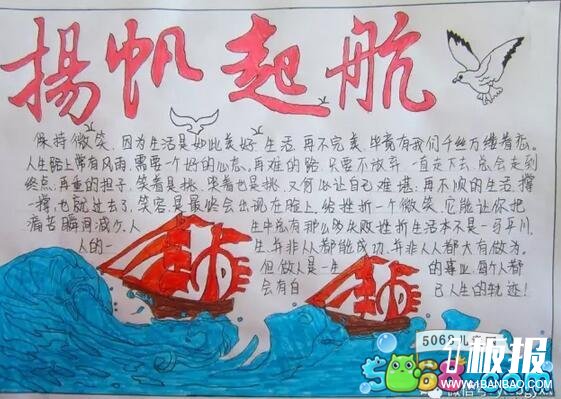 揚帆起航
保持微笑,因为生活是如此美好,生活,再不完美,毕竟有我们千丝万缕眷恋。
人生路上常有风雨,需要一个好的心态。再难的路,只要不放弃一直走下去,总会走到
终点,再重的担子,笑着是挑,哭着也是挑,又何必让自己难堪;再不顺的生活,撑一
撑,也就过去了,笑容,是最终会出现在脸上,给挫折一个微笑,它能让你把
痛苦瞬间减少,人生中总有那么多失败挫折生活本不是一马平川,
人的一生,并非人人都能成功,并非人人都大有做为。
但做人是一生的事业,每个人都
会有自己人生的轨迹!
5068儿
板报
41BANBAO.COM
微信号: